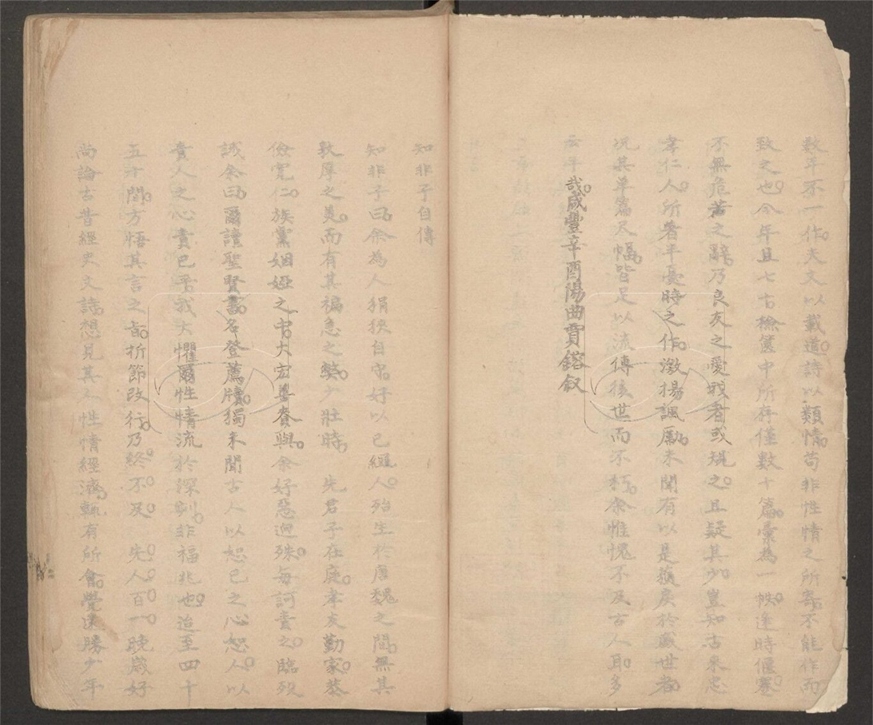 數年不一作夫文以載道詩以類情苟非性情之所寄不能作而
致之也今年且七十檢篋中所存僅數十篇彙為一帙逢時偃蹇
不無危苦之辭乃良友之愛我者或規之且疑其少豈知古來忠
孝仁人所著平憂時之作激揚諷厲未聞有以是獲戾於盛世者
況其單篇尺幅皆足以流傳後世而不朽余惟愧不及古人耳多
云乎哉咸豐辛酉陽曲賈鎔叙
知非子自傳
知非子曰余為人狷狹自守好以己繩人殆生於唐魏之間無其
敦厚之美而有其褊急之弊少壯時先君子在庭孝友勤家恭
儉寬仁族黨姻婭之中大宏晷養與余好惡迥殊每訶責之臨歿
誡余曰爾讀聖賢書名登薦牘獨未聞古人以恕己之心恕人以
責人之心責己乎我大懼爾性情流於深刻非福兆也迨至四十
五十間方悟其言之旨折節改行乃終不及先人百一晚歲好
尚論古昔經史文詩想見其人性情經濟輒有所會覺遠勝少年